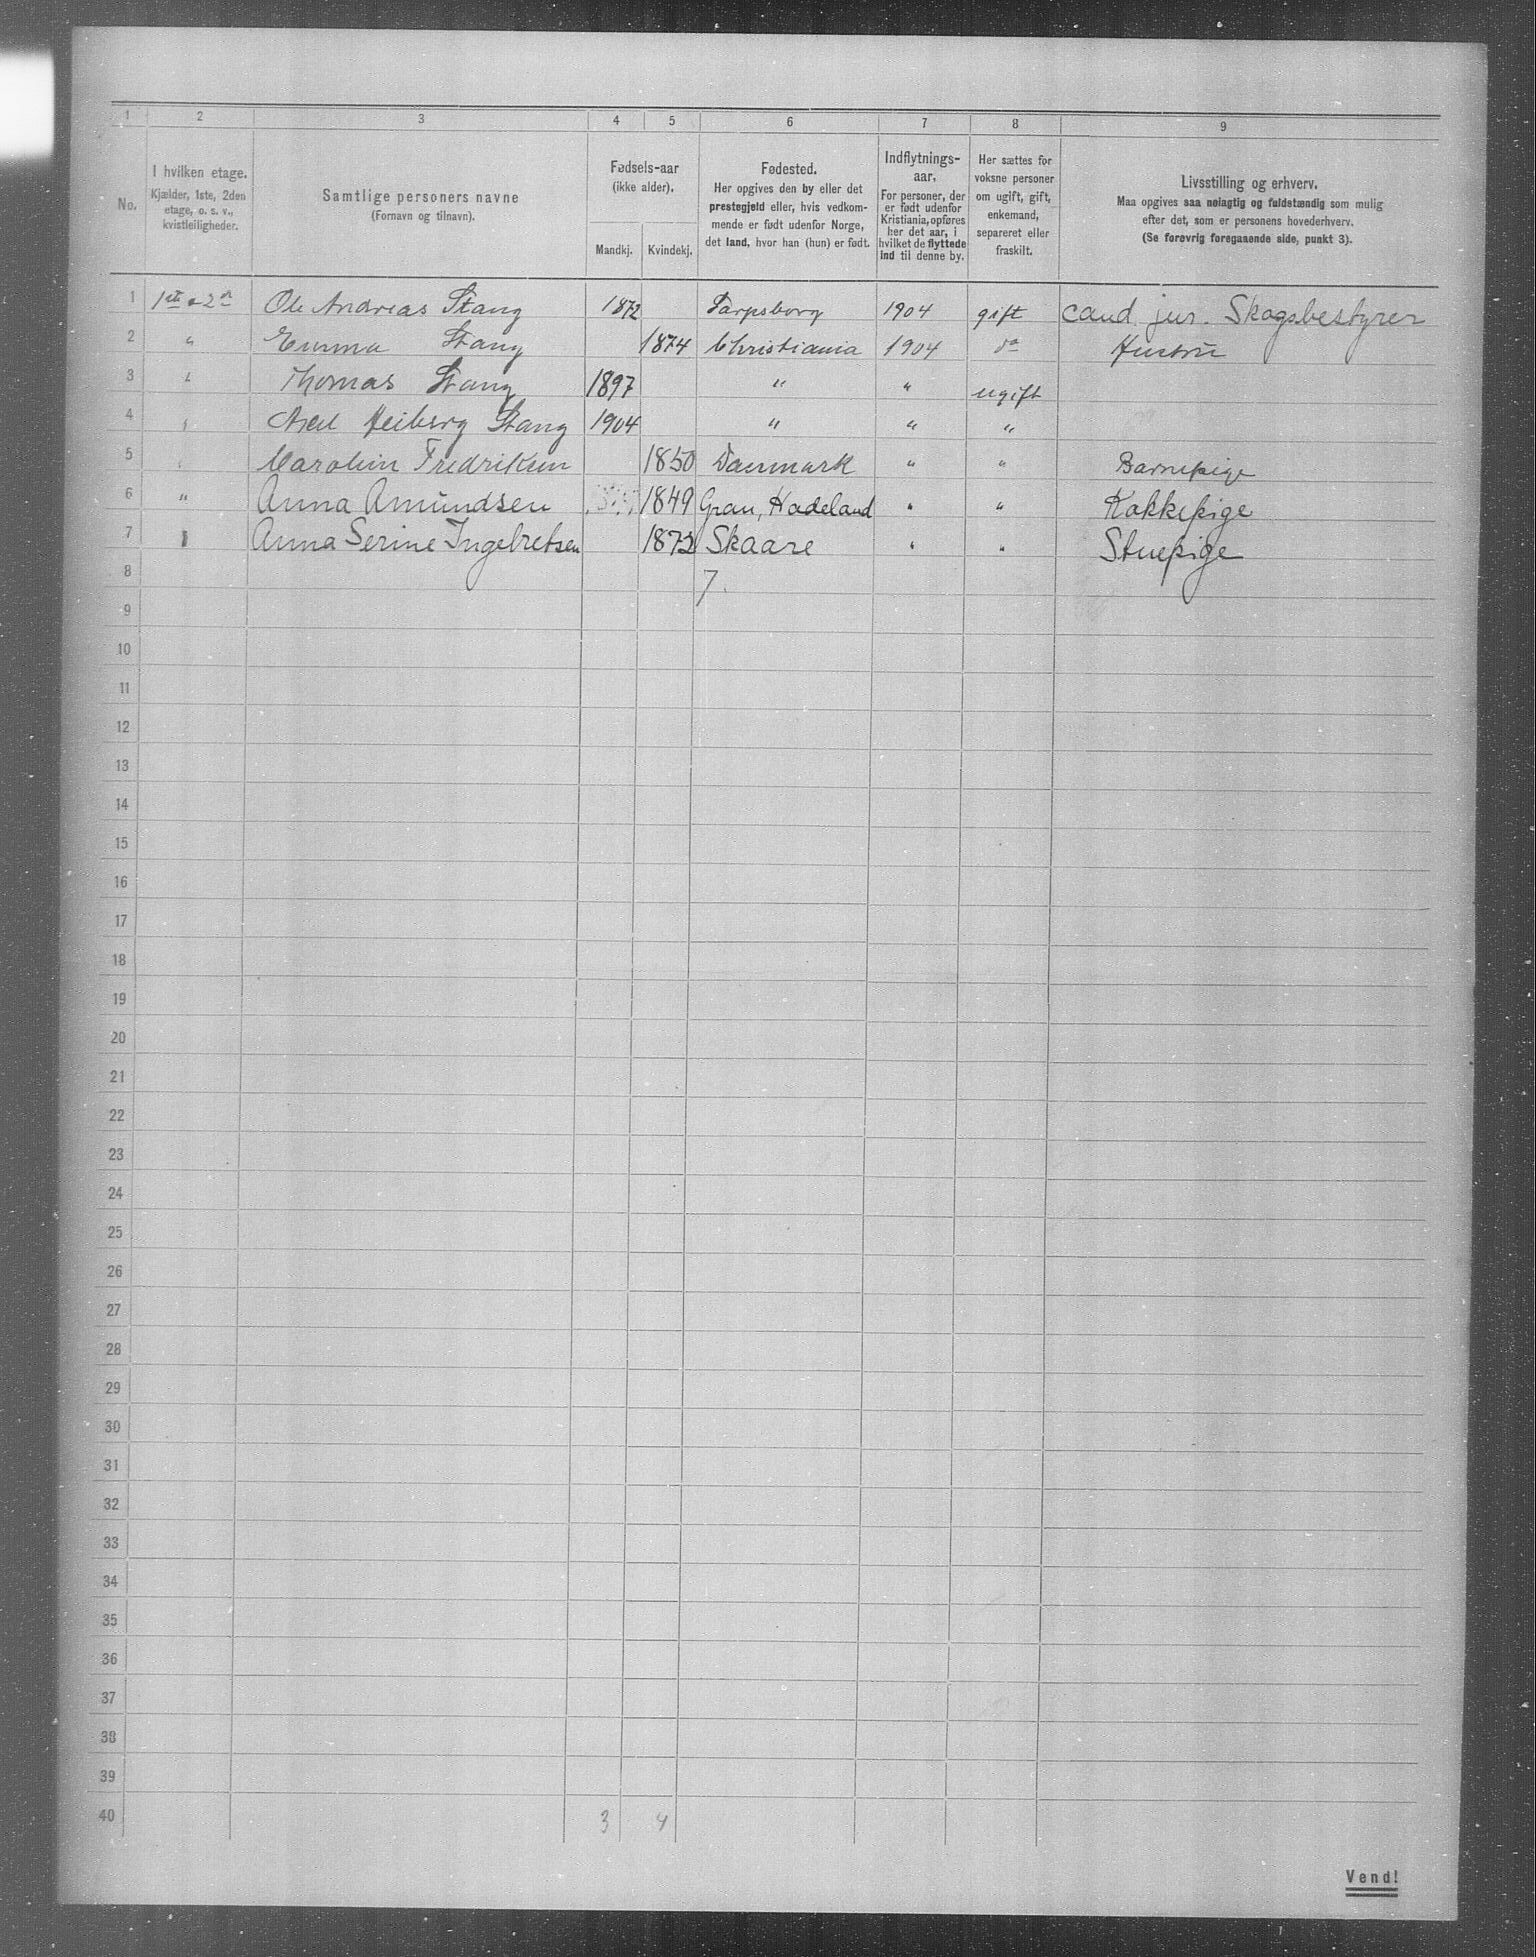 1 2 3 4 5 6 7 8 9
No. I hvilken etage. Kjælder, 1ste, 2den etage, o. s. v., kvistleiligheder. Samtlige personers navne (Fornavn og tilnavn). Fødsels-aar (ikke alder). Mandkj. Kvindekj. Fødested. Her opgives den by eller det prestegjeld eller, hvis vedkommende er født udenfor Norge, det land, hvor han (hun) er født. Indflytnings-aar. For personer, der er født udenfor Kristiania, opføres her det aar, i hvilket de flyttede ind til denne by. Her sættes for voksne personer om ugift, gift, enkemand, separeret eller fraskilt. Livsstilling og erhverv. Maa opgives saa nøiagtig og fuldstændig som mulig efter det, som er personens hovederhverv. (Se forøvrig foregaaende side, punkt 3).
1 1ste & 2den Ole Andreas Stang 1872 Sarpsborg 1904 gift cand. jur. Skogsbestyrer
2 " Emma Stang 1874 Christiania 1904 do Hustru
3 " Thomas Stang 1897 " " ugift
4 " Axel Heiberg Stang 1904 " " "
5 " Carolin Fredriksen 1850 Danmark " " Barnepige
6 " Anna Amundsen 1849 Gran, Hadeland " " Kokkepige
7 " Anna Serine Ingebretsen 1872 Skaare " " Stuepige
8 7.
9
10
11
12
13
14
15
16
17
18
19
20
21
22
23
24
25
26
27
28
29
30
31
32
33
34
35
36
37
38
39
40 3 4
Vend!